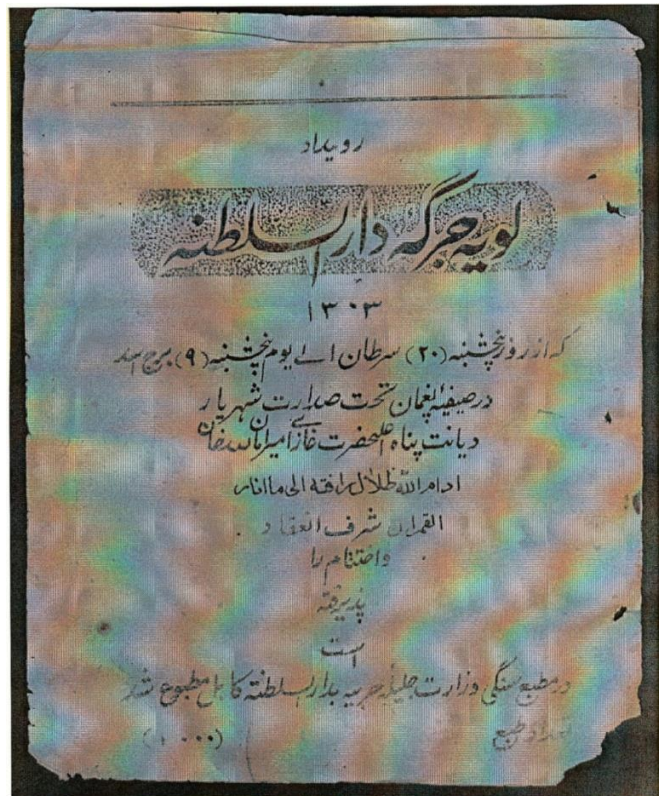 رویداد
لویه جرگه دار السلطنه
۱۳۰۳
که از روز پنجشنبه (۲۰) سرطان الی یوم پنجشنبه (۹) برج اسد
در صیفیه پغمان تحت صدارت شهریار
دیانت پناه اعلیحضرت غازی امیر امان الله خان
ادام الله ظلال رافته الی ما انار
القمران شرف انعقاد
و اختتام را
پذیرفته
است
در مطبع سنگی وزارت جلیله حربیه بدار السلطنه کابل مطبوع شد
تعداد طبع